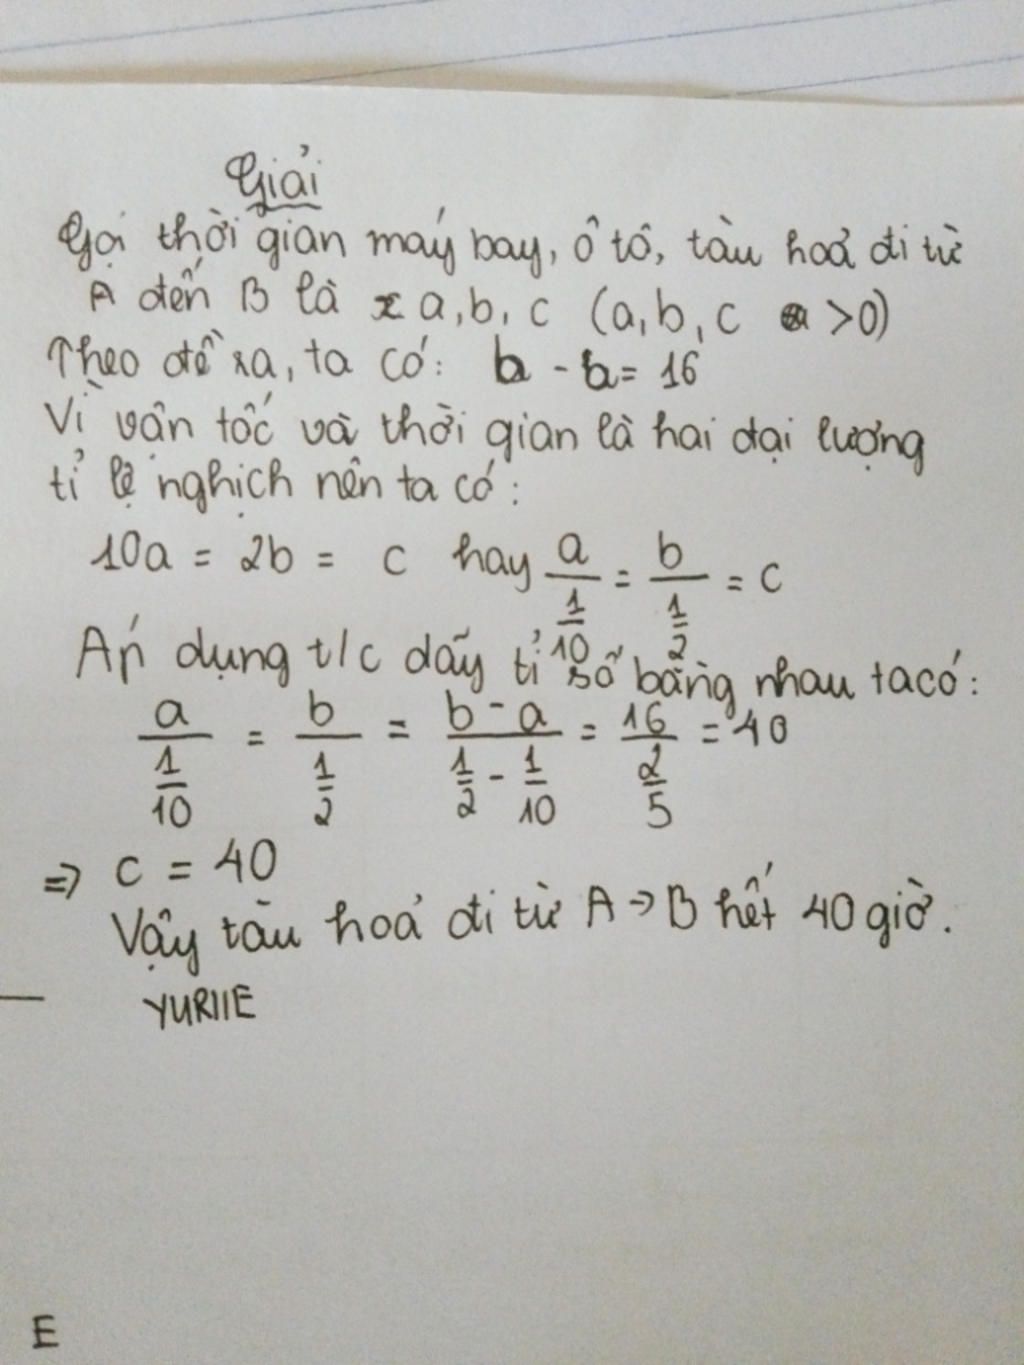 Giải
Gọi thời gian máy bay, ô tô, tàu hoả đi từ
A đến B là a, b, c (a, b, c >0)
Theo đề ra, ta có: b - a = 16
Vì vận tốc và thời gian là hai đại lượng
tỉ lệ nghịch nên ta có:
10a = 2b = c hay a/(1/10) = b/(1/2) = c
Áp dụng t/c dãy tỉ số bằng nhau ta có:
a/(1/10) = b/(1/2) = (b - a)/(1/2 - 1/10) = 16/(2/5) = 40
=> c = 40
Vậy tàu hoả đi từ A → B hết 40 giờ.
YURIIE
E